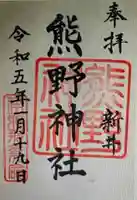 奉拝 新井
熊野神社
令和五年一月十九日
熊野
神社